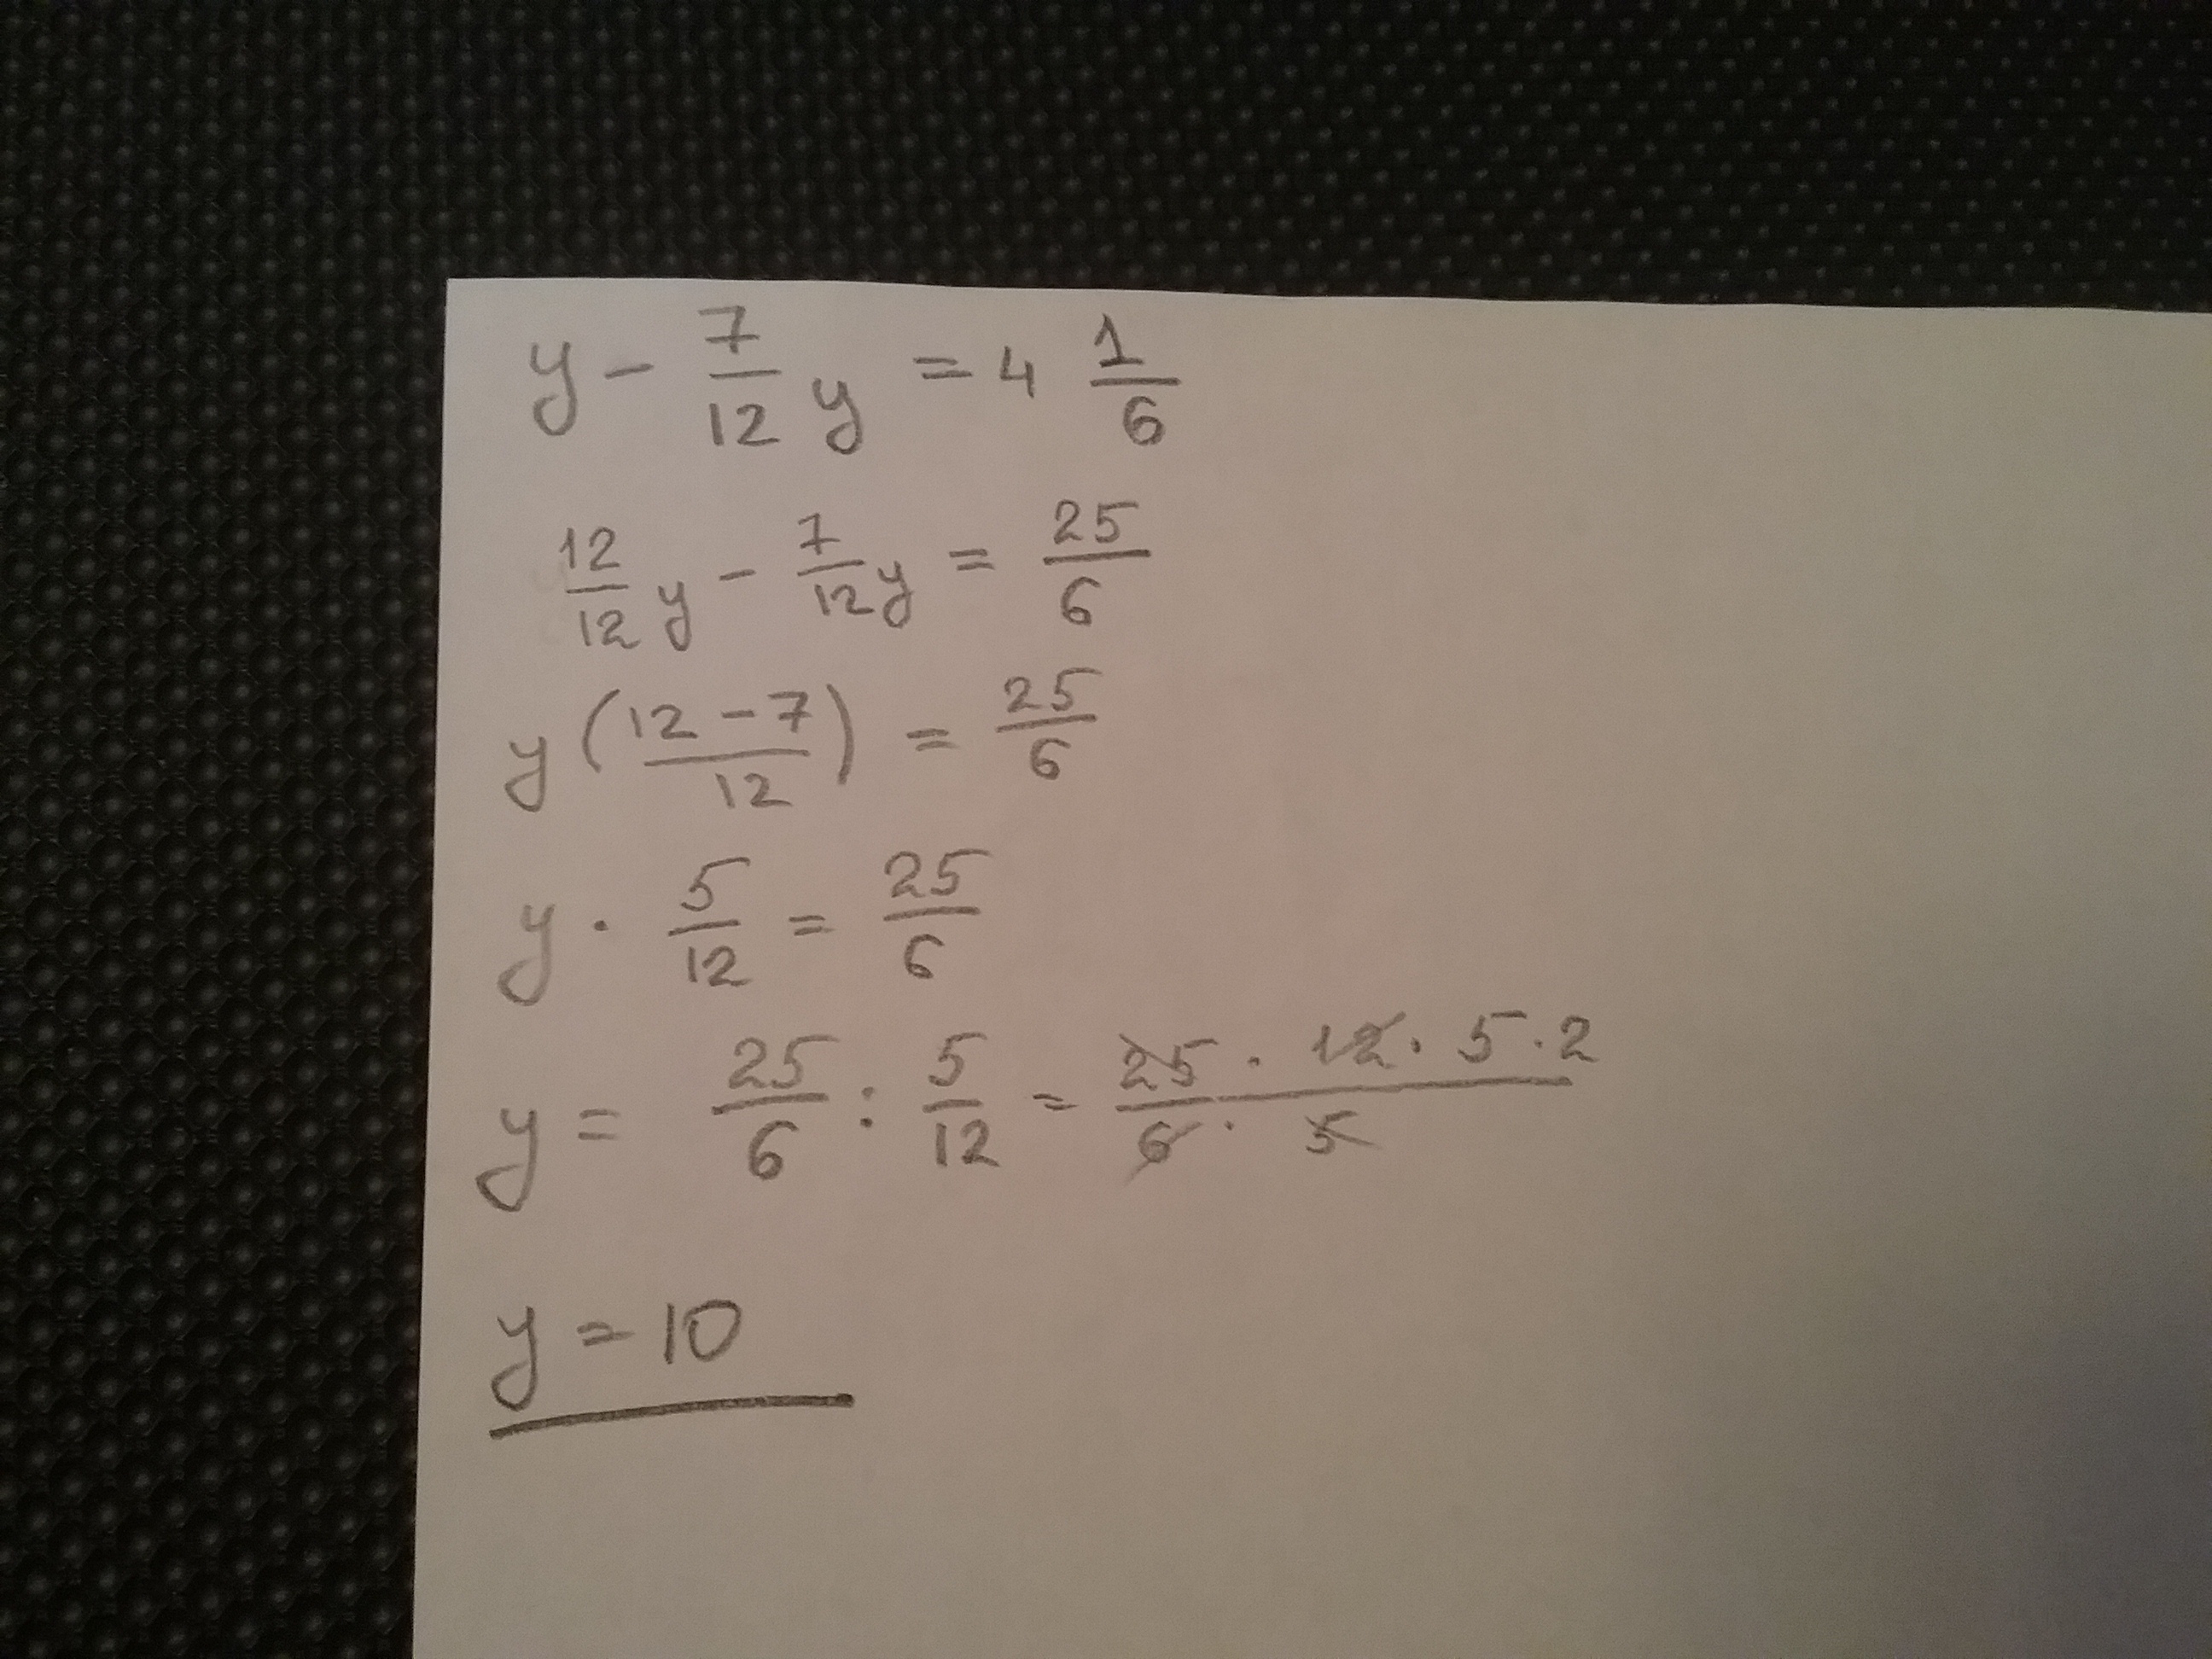 y - 7/12 y = 4 1/6
12/12 y - 7/12 y = 25/6
y (12 - 7 / 12) = 25/6
y · 5/12 = 25/6
y = 25/6 : 5/12 = 25 · 12 · 5 · 2 / 6 · 5
y = 10